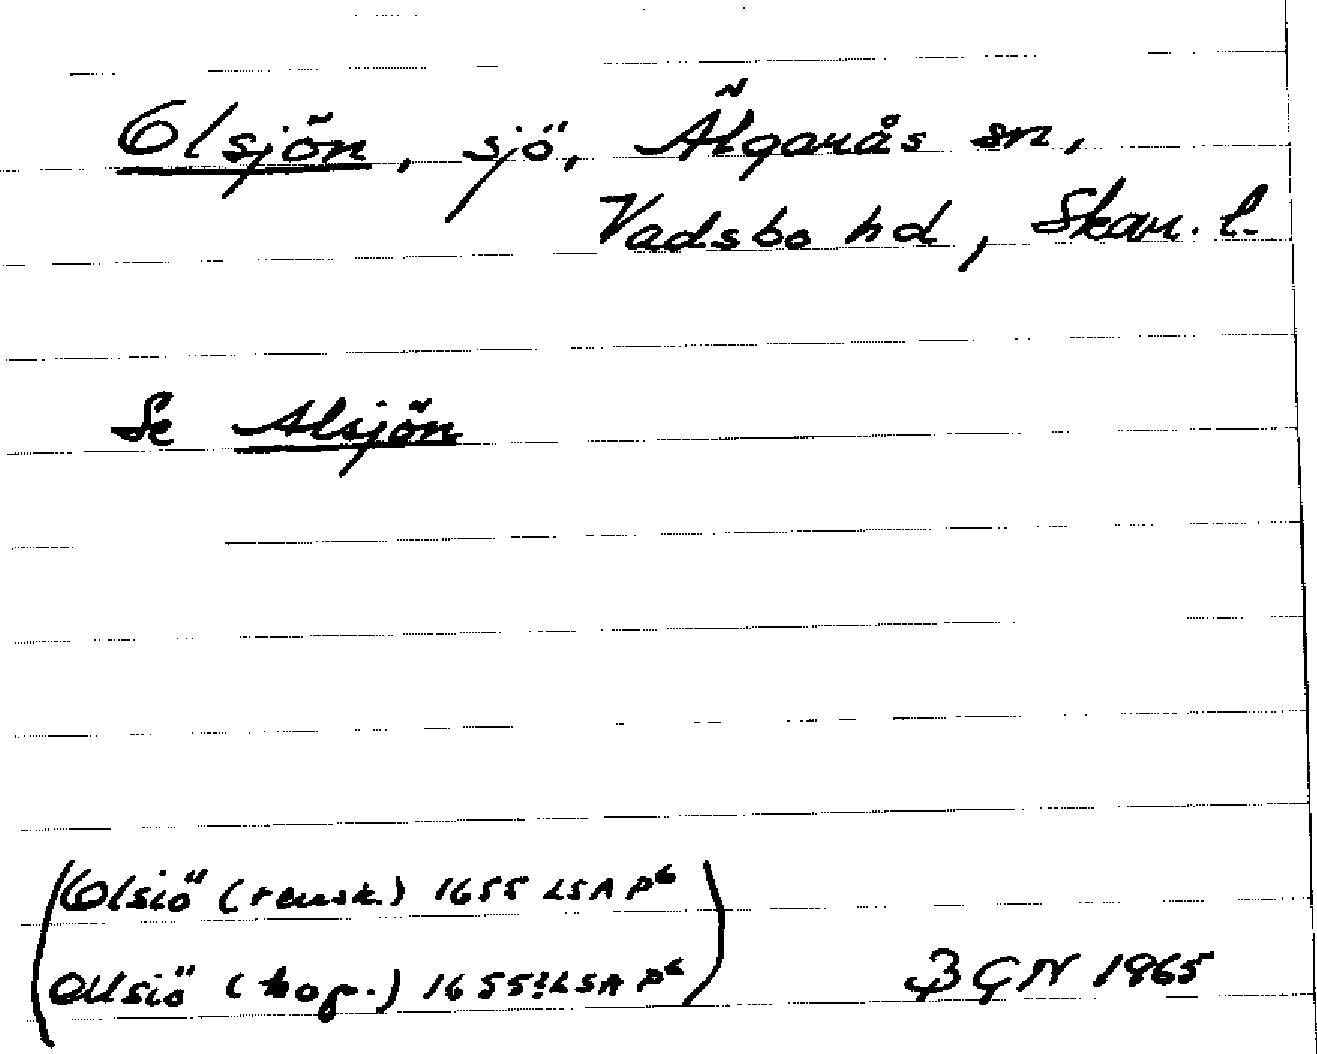 Olsjön, sjö, Älgarås sn,
Vadsbo hd, Skar. l.
Se Alsjön
(Olsiö (rensk.) 1655 LSA P6
Ollsiö (kop.) 1655? LSA P6)
BGN 1965